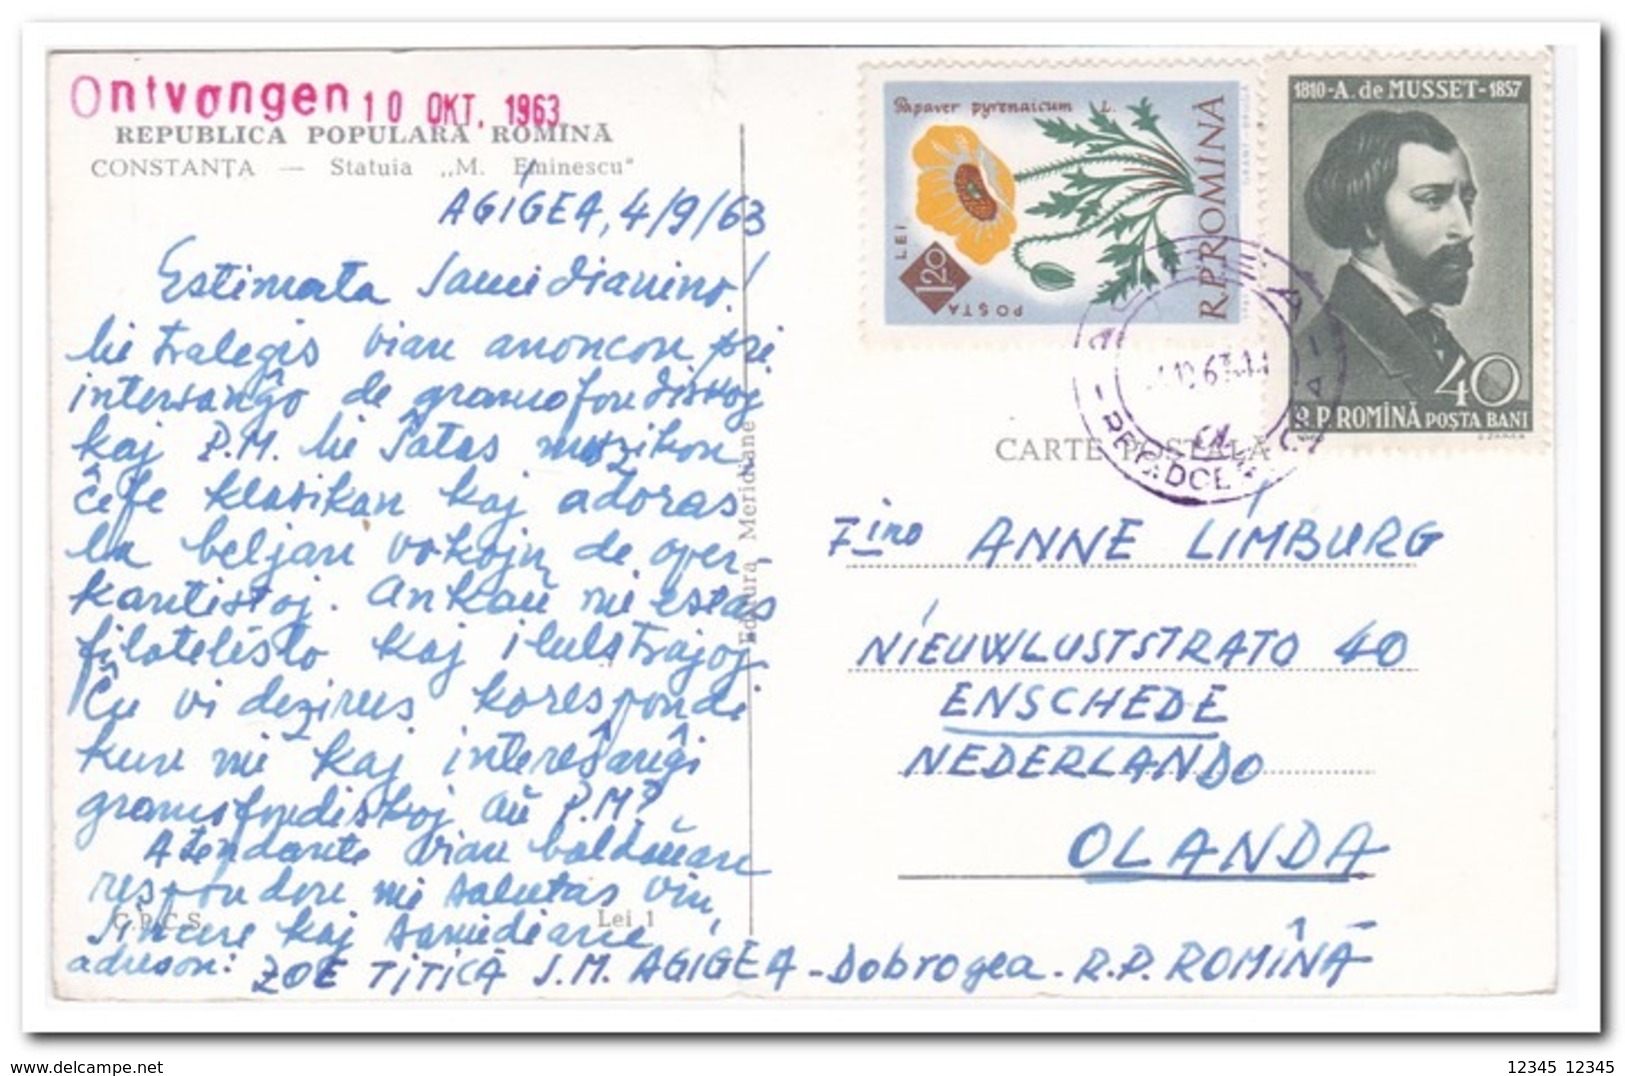 Ontvangen 10 OKT. 1963
REPUBLICA POPULARĂ ROMÎNĂ
CONSTANȚA — Statuia „M. Eminescu"
AGIGEA, 4/9/63
Estimata Samidianino!
Mi tralegis vian anoncon pri
interŝanĝo de gramofondiskoj
kaj P.M. Mi ŝatas muzikon
ĉefe klasikan kaj adoras
la beljan voĉojn de oper-
kantistoj. Ankaŭ mi estas
filatelisto kaj ilustraĵoj.
Ĉu vi dezirus korespondi
kun mi kaj interŝanĝi
gramofondiskoj aŭ P.M?
Atendante vian baldaŭan
respondon mi salutas vin,
Sincere kaj samideane
adreson: ZOE TITICĂ S.M. AGIGEA - Dobrogea - R.P. ROMÎNĂ
C.P.C.S.
Lei 1
Editura Meridiane
Papaver pyrenaicum L.
LEI
1,20
POSTA
R.P.ROMÎNA
1810-A. de MUSSET-1857
40
R.P.ROMÎNĂ POȘTA BANI
CARTE POȘTALĂ
Fino ANNE LIMBURG
NIEUWLUSTSTRATO 40
ENSCHEDE
NEDERLANDO
OLANDA
12345 12345
© delcampe.net